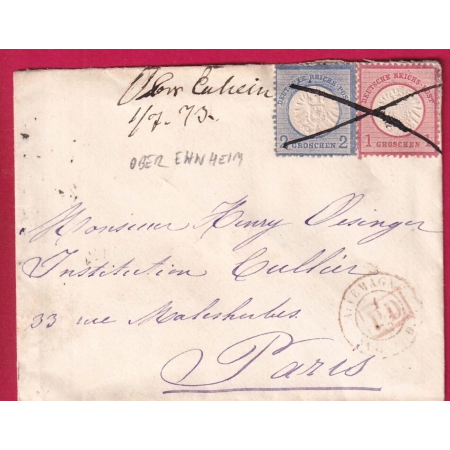 Ober Enhein
1/7. 73.
OBER EHNHEIM
DEUTSCHE REICHS-POST
2 2
GROSCHEN
DEUTSCHE REICHS-POST
1
GROSCHEN
Monsieur Henry Oisinger
Institution Cullier
33 rue Malesherbes
Paris
ALLEMAGNE
P.D.